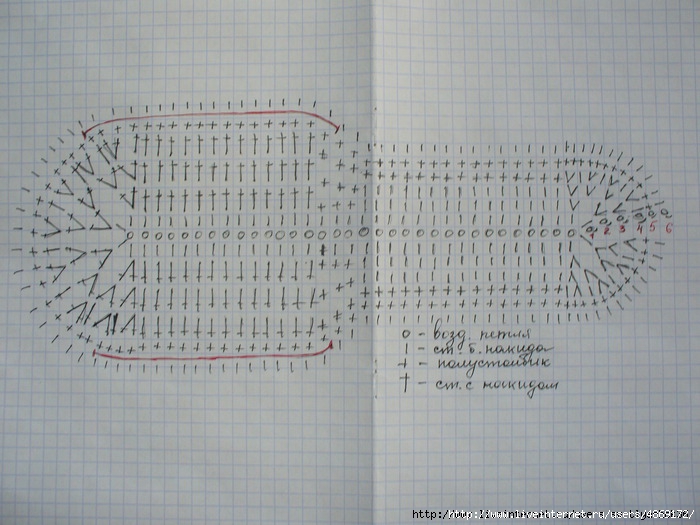 1 2 3 4 5 6
o - возд. петля
| - ст. б. накида
+ - полустолбик
† - ст. с накидом
http://www.liveinternet.ru/users/4869172/